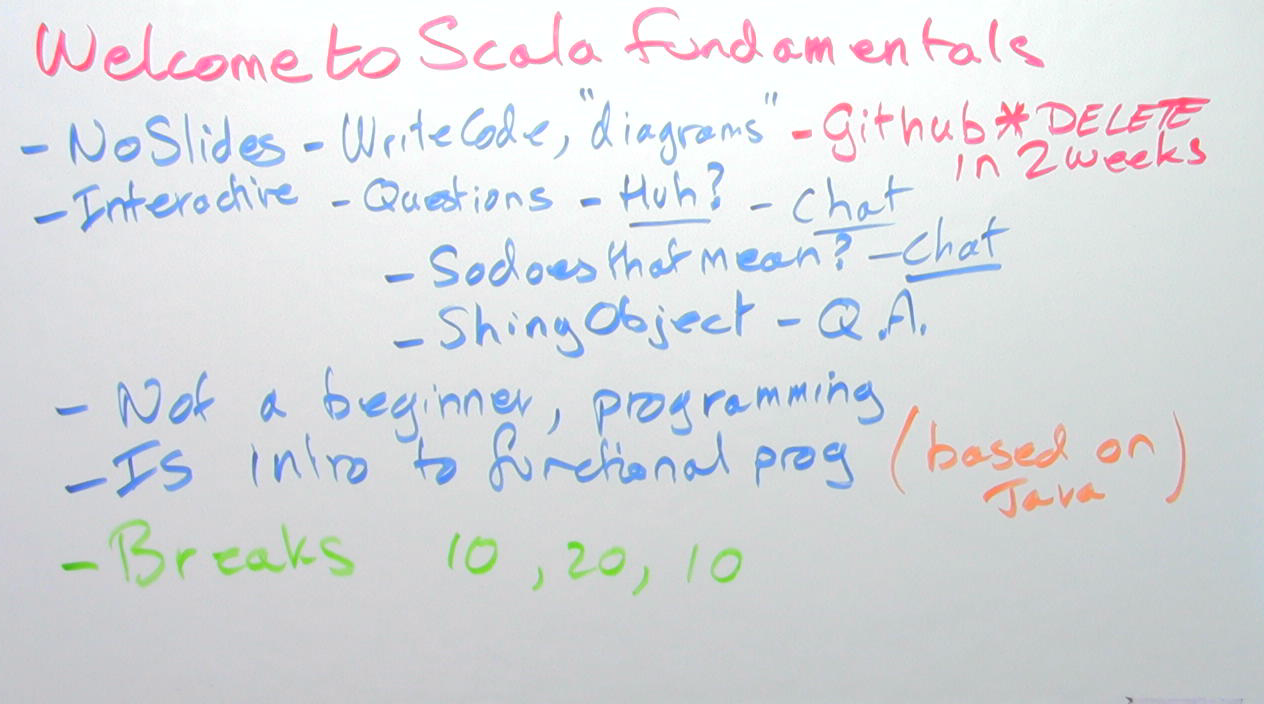 Welcome to Scala fundamentals
- No Slides - Write Code, "diagrams" - Github * DELETE
in 2 weeks
- Interactive - Questions - Huh? - Chat
- So does that mean? - Chat
- Shiny Object - Q.A.
- Not a beginner, programming
- Is intro to functional prog (based on
Java)
- Breaks 10, 20, 10